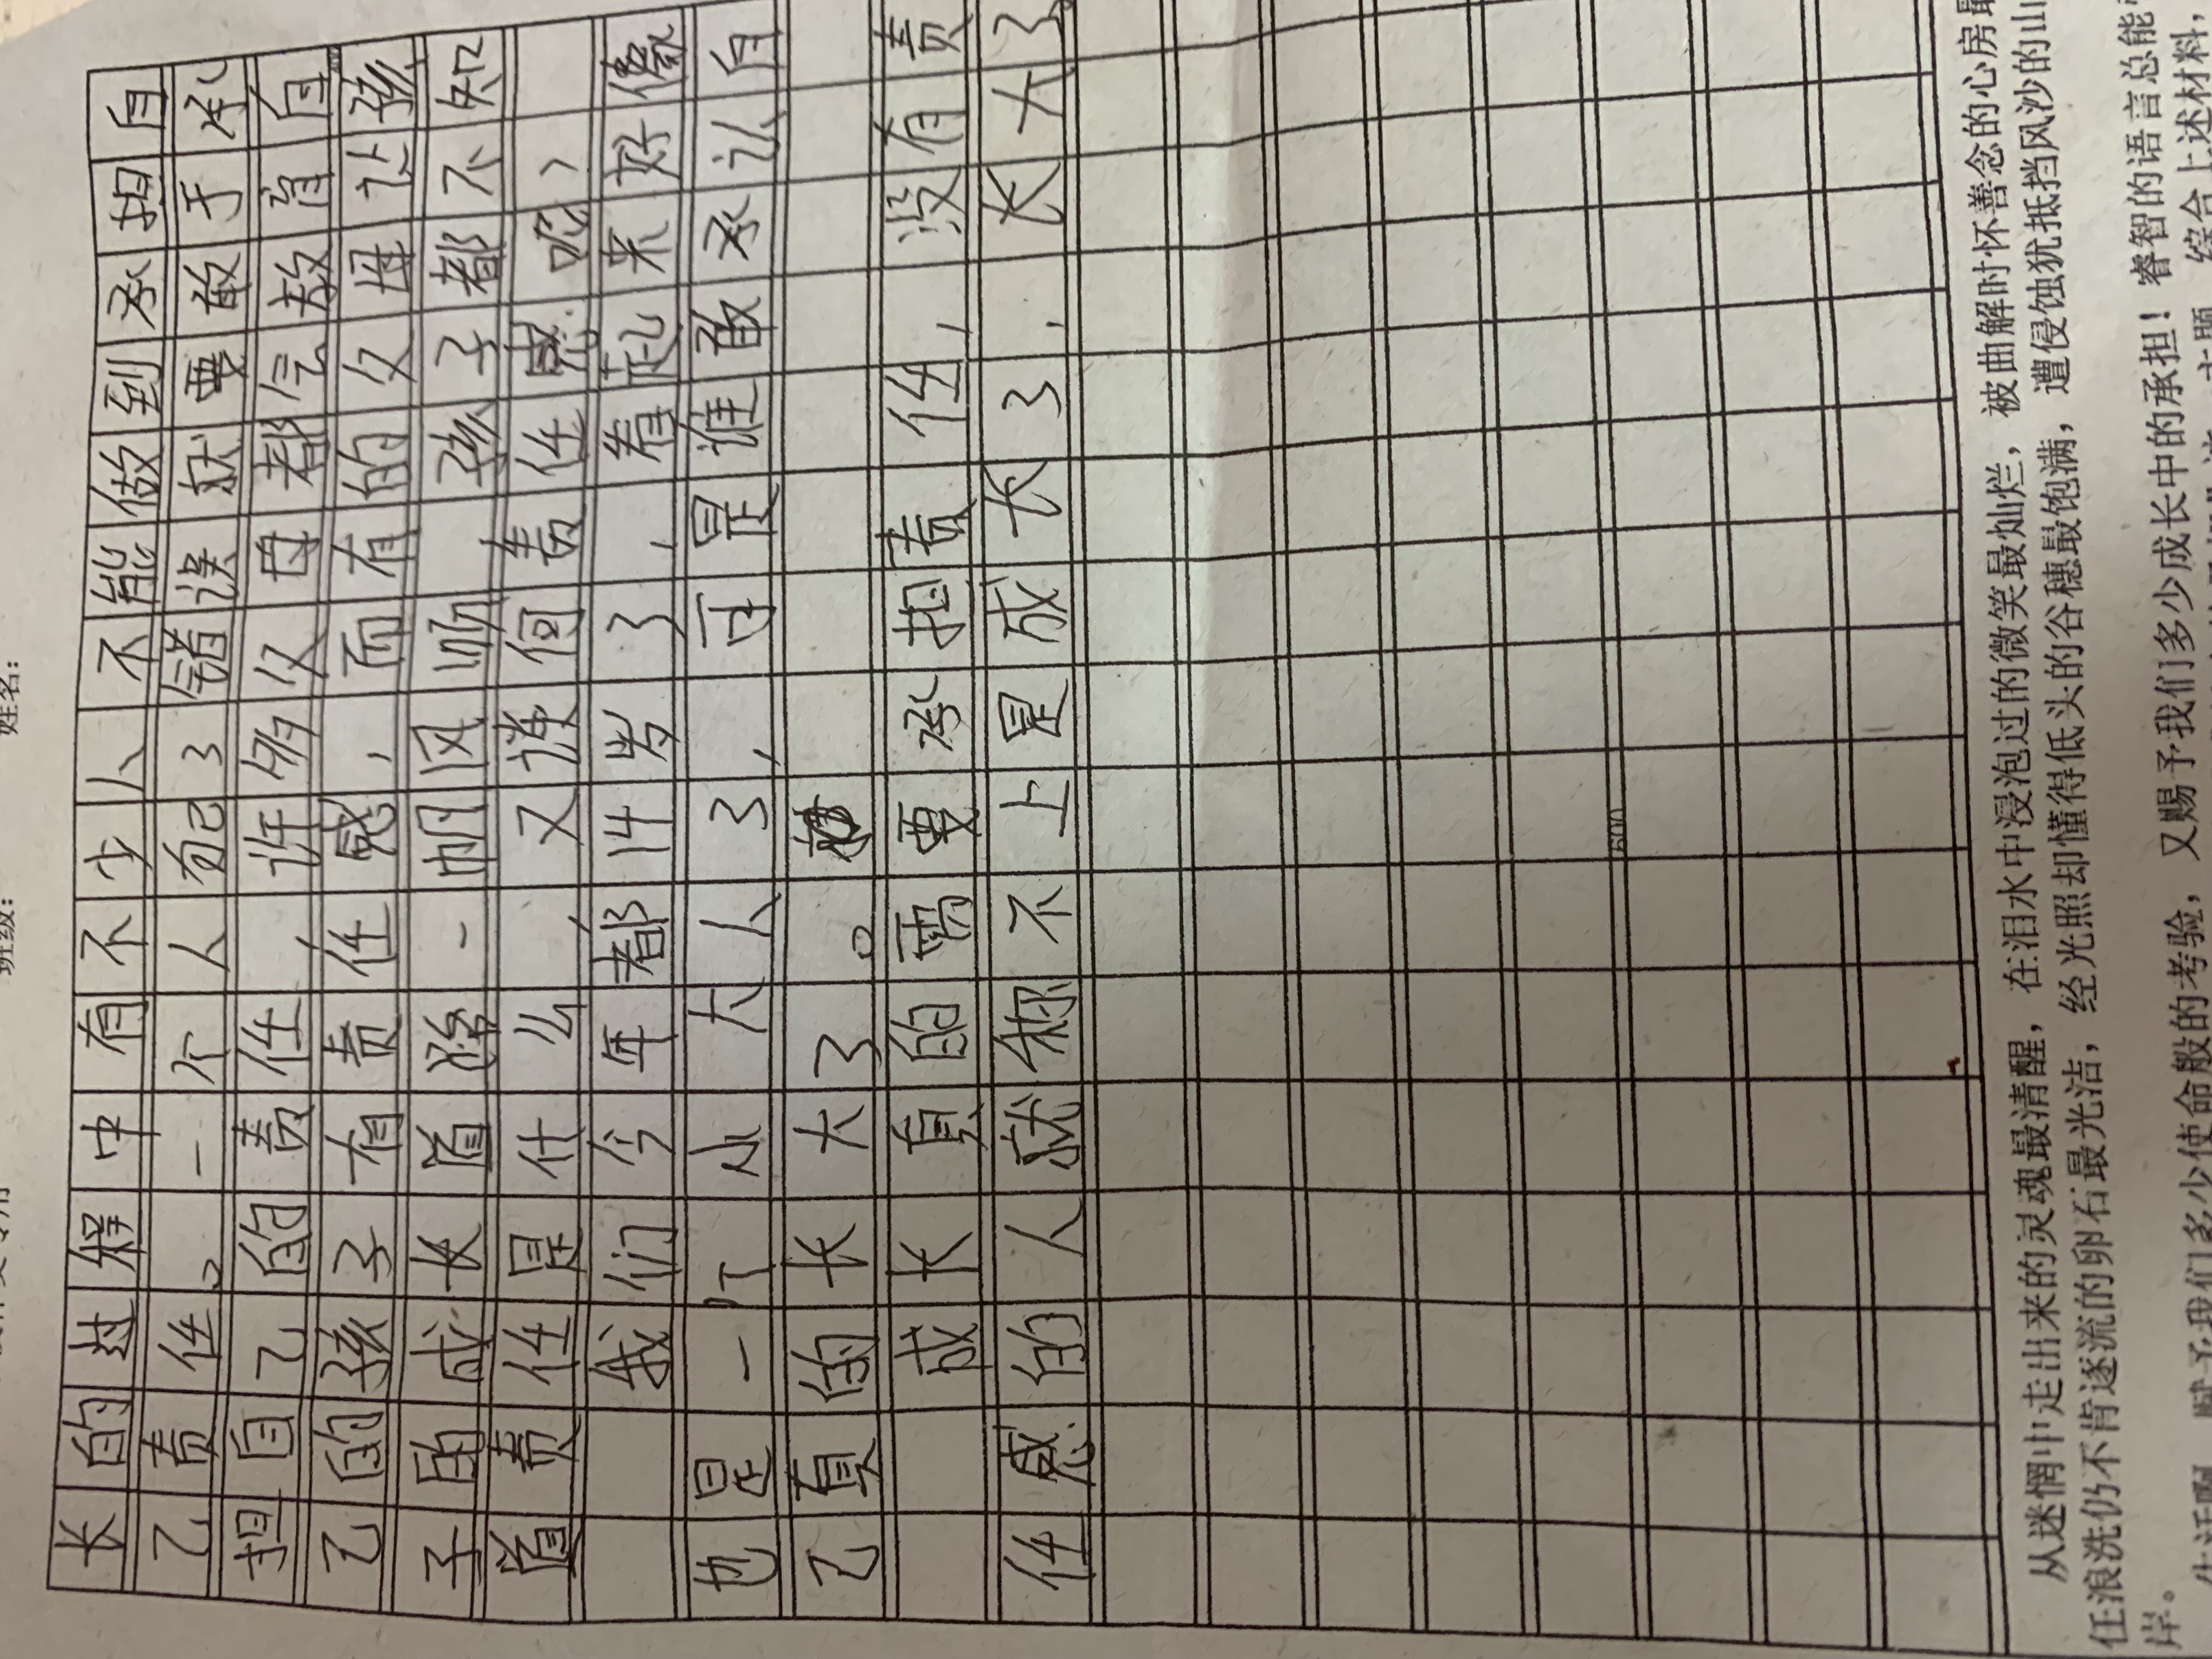 班级: 姓名:
长的过程中有不少人不能做到承担自
己责任。一个人犯了错误就要敢于承
担自己的责任,许多父母都会教育自
己的孩子有责任感,而有的父母让孩
子再成长道路一帆风顺 孩子都不知
道责任是什么,又谈何责任感呢?
我们今年都14岁了,看起来好像
也是一个小大人了,可是谁敢承认自
己真的长大了。
成长真的需要承担责任,没有责
任感的人就称不上是成长了,长大了
600
从迷惘中走出来的灵魂最清醒,在泪水中浸泡过的微笑最灿烂,被曲解时怀善念的心房最
任浪洗仍不肯逐流的卵石最光洁,经光照却懂得低头的谷穗最饱满,遭侵蚀犹抵挡风沙的山
岸。
生活啊,赋予我们多少使命般的考验,又赐予我们多少成长中的承担!睿智的语言总能
综合上述材料,